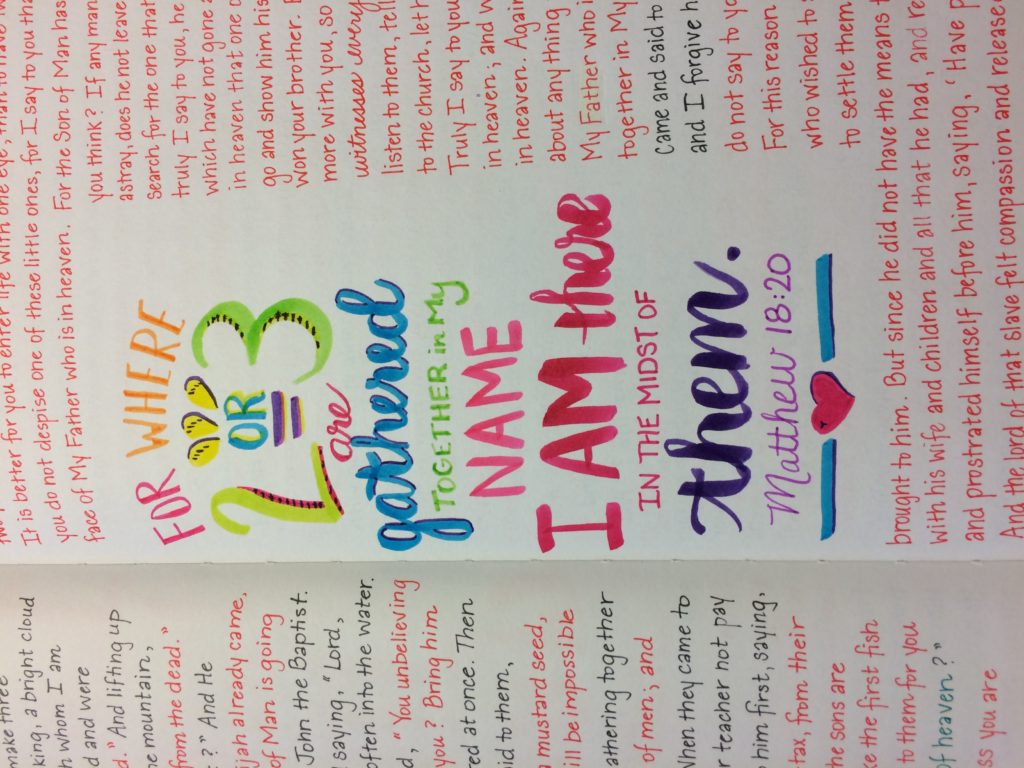 make three
king, a bright cloud
whom I am
and were
." And lifting up
mountain,
from the dead."
?" And He
already came,
of Man is going
John the Baptist.
saying, "Lord,
often into the water.
, "You unbelieving
you? Bring him
at once. Then
to them,
mustard seed,
be impossible
together
of men; and
When they came to
teacher not pay
him first, saying,
tax, from their
the sons are
the first fish
to them for you
of heaven?"
you are
It is better for you to enter life with one eye, than to have
you do not despise one of these little ones, for I say to you that
face of My Father who is in heaven. For the Son of Man has
you think? If any man
astray, does he not leave
search for the one that
truly I say to you, he
which have not gone
in heaven that one
go and show him his
won your brother.
more with you, so
witnesses every
listen to them, tell
to the church, let
Truly I say to you
in heaven; and
in heaven. Again
about anything
My Father who
together in My
Came and said to
and I forgive
do not say to
For this reason
who wished to
to settle them
FOR WHERE
2 OR 3
are
gathered
TOGETHER in My
NAME
I AM there
IN THE MIDST OF
them.
Matthew 18:20
brought to him. But since he did not have the means
with his wife and children and all that he had, and
and prostrated himself before him, saying, 'Have
And the lord of that slave felt compassion and released